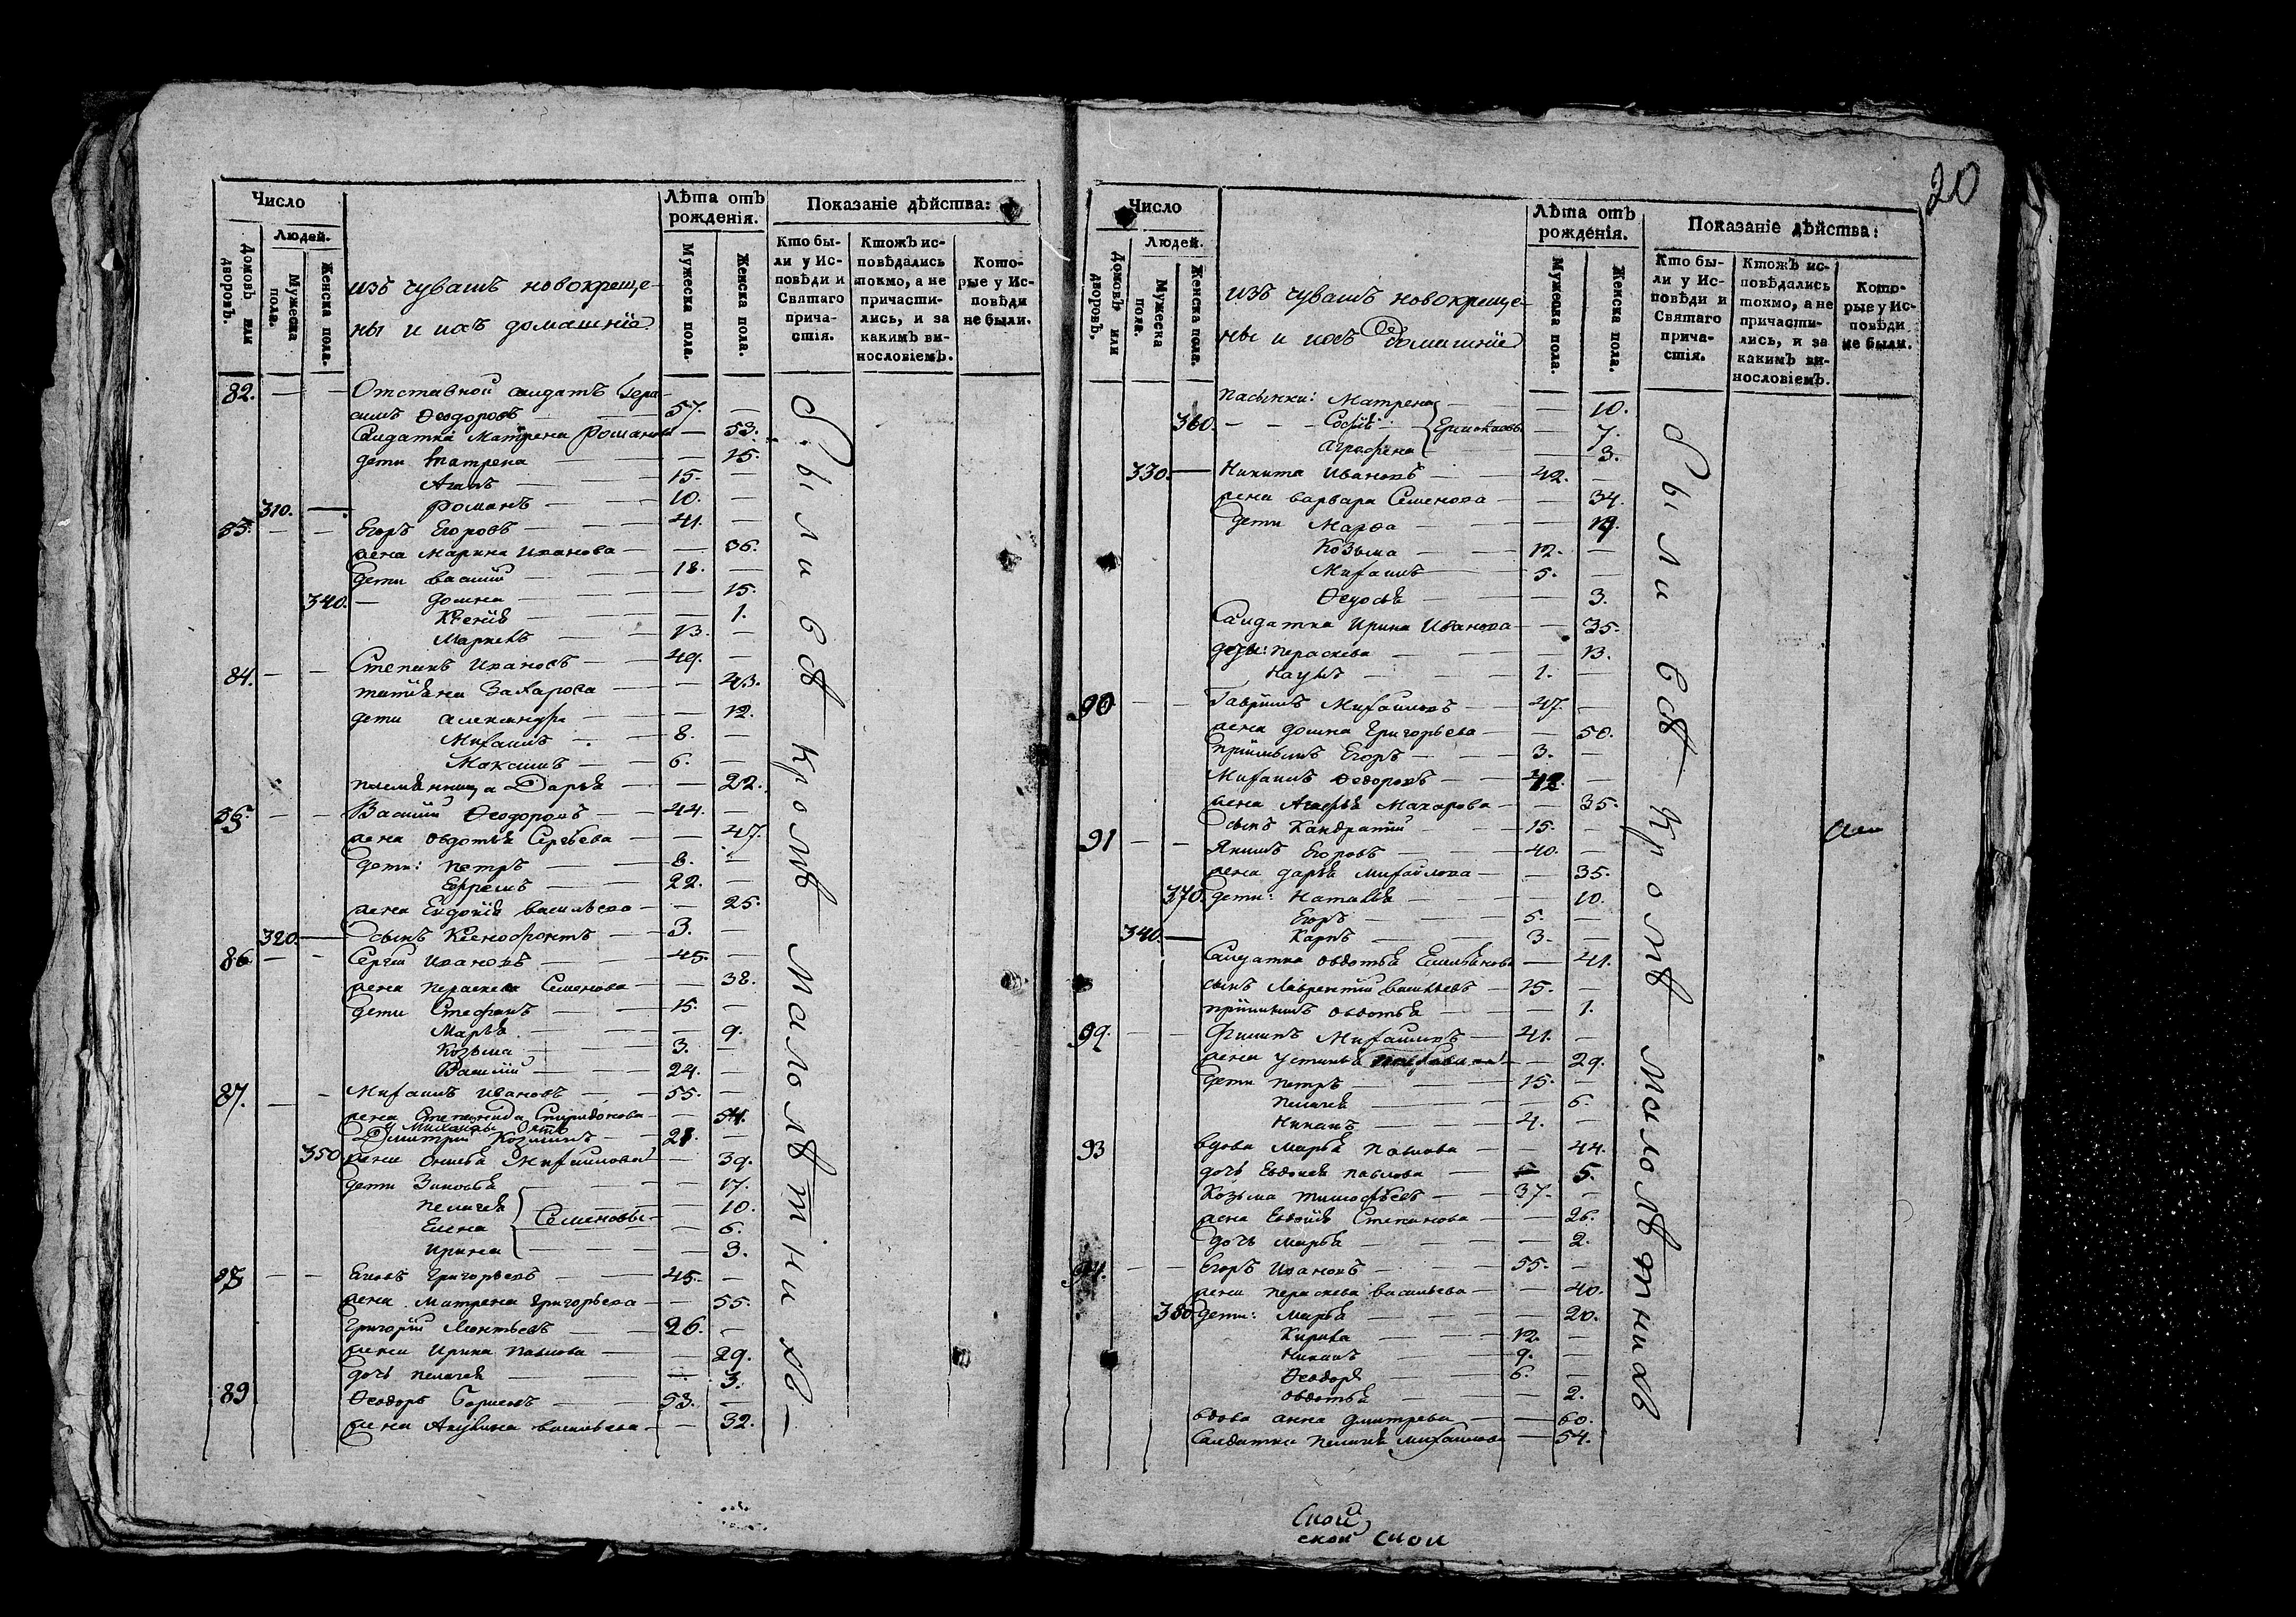 Число
Людей.
Домовъ или дворовъ.
Мужеска пола.
Женска пола.
изъ чувашъ новокреще-
ны и ихъ домашніе
Лѣта отъ рожденія.
Мужеска пола.
Женска пола.
Показаніе дѣйства:
Кто бы-
ли у Ис-
повѣди и
Святаго
прича-
стія.
Ктожъ ис-
повѣдались
токмо, а не
причасти-
лись, и за
какимъ ви-
нословіемъ.
Кото-
рые у Ис-
повѣди
не были.
82. — — Отставной солдатъ Гера
симъ Ѳеодоровъ — 57. —
Солдатка Матрена Романова — 53.
дети Матрена — — 15.
Агапъ — 15. —
310. — Романъ — 10. —
— — Егоръ Егоровъ — 41. —
жена Марина Иванова — — 36.
дети Василій — 18. —
340. — Домна — — 15.
Ксенія — — 1.
Маркелъ — 13. —
84. — — Степанъ Ивановъ — 49. —
татіяна Захарова — — 43.
дети Александра — — 12.
Михаилъ — 8. —
Максимъ — 6. —
племянница Дарья — — 22.
— — Василій Ѳеодоровъ — 44. —
жена Овдотья Сергѣева — — 47.
дети: Петръ — 8. —
Ефремъ — 22. —
жена Евдокія Васильева — — 25.
320. — сынъ Ксенофонтъ — 3. —
86 — — Сергей Ивановъ — 45. —
жена Параскева Семенова — — 38.
дети Стефанъ — 15. —
Марья — — 9.
Козьма — 3. —
Василій — 24. —
87. — — Михаилъ Ивановъ — 55. —
жена Степанида Спиридонова — — 54.
у Михайлы
Дмитрій Козминъ — 21. —
350 жена Михайлова — — 39.
дети Зиновья — — 17.
Пелагея — — 10.
Елена Семеновы — — 6.
Ирина — — 3.
88 — — Григорьевъ — 45. —
жена Матрена Григорьева — — 55.
Григорій Леонтьевъ — 26. —
жена Ирина Павлова — — 29.
дочь Пелагея — — 3.
89 Ѳеодоръ — 53. —
жена Акулина Васильева — — 32.
были всѣ кромѣ малолѣтнихъ —
20
Число
Людей.
Домовъ или дворовъ.
Мужеска пола.
Женска пола.
изъ чувашъ новокреще-
ны и ихъ домашніе
Лѣта отъ рожденія.
Мужеска пола.
Женска пола.
Показаніе дѣйства:
Кто бы-
ли у Ис-
повѣди и
Святаго
прича-
стія.
Ктожъ ис-
повѣдались
токмо, а не
причасти-
лись, и за
какимъ ви-
нословіемъ.
Кото-
рые у Ис-
повѣди
не были.
пасынки: Матрена — — 10.
360. — Софія Ермолаевы — 7.
Аграфена — — 3.
330. — Никита Ивановъ — 42. —
жена Варвара Семенова — — 34.
дети Марѳа — — 19.
Козьма — 12. —
Михаилъ — 5. —
Ѳедосья — — 3.
Солдатка Ирина Иванова — — 35.
дети: Параскева — — 13.
Наумъ — 1. —
90 — — Гаврилъ Михайловъ — 47. —
жена Домна Григорьева — — 50.
пріимышъ Егоръ — 3. —
Михаилъ Ѳедоровъ — 42. —
жена Агафья Макарова — — 35.
сынъ Кандратій — 15. —
91 — — Якимъ Егоровъ — 40. —
жена Дарья Михайлова — — 35.
370. дети: Наталья — — 10.
Егоръ — 5. —
340. — Карпъ — 3. —
Солдатка Овдотья Емельянова — 41.
сынъ Лаврентій Васильевъ — 15. —
Овдотья — — 1.
— — Филипъ Михайловъ — 41. —
жена Устинья — — 29.
дети Петръ — 15. —
Пелагея — — 6.
— 4. —
93 вдова Марья Павлова — — 44.
дочь Евдокея Павлова — — 5.
Козьма Тимофѣевъ — 37. —
жена Евдокія Степанова — — 26.
дочь Марья — — 2.
94. — — Егоръ Ивановъ — 55. —
жена Параскева Васильева — — 40.
380 дети: Марья — — 20.
Кирила — 12. —
— 9. —
Ѳеодоръ — 6. —
Овдотья — — 2.
вдова Анна Дмитрева — — 60.
Солдатка Пелагея Михайлова — 54.
были всѣ кромѣ малолѣтнихъ